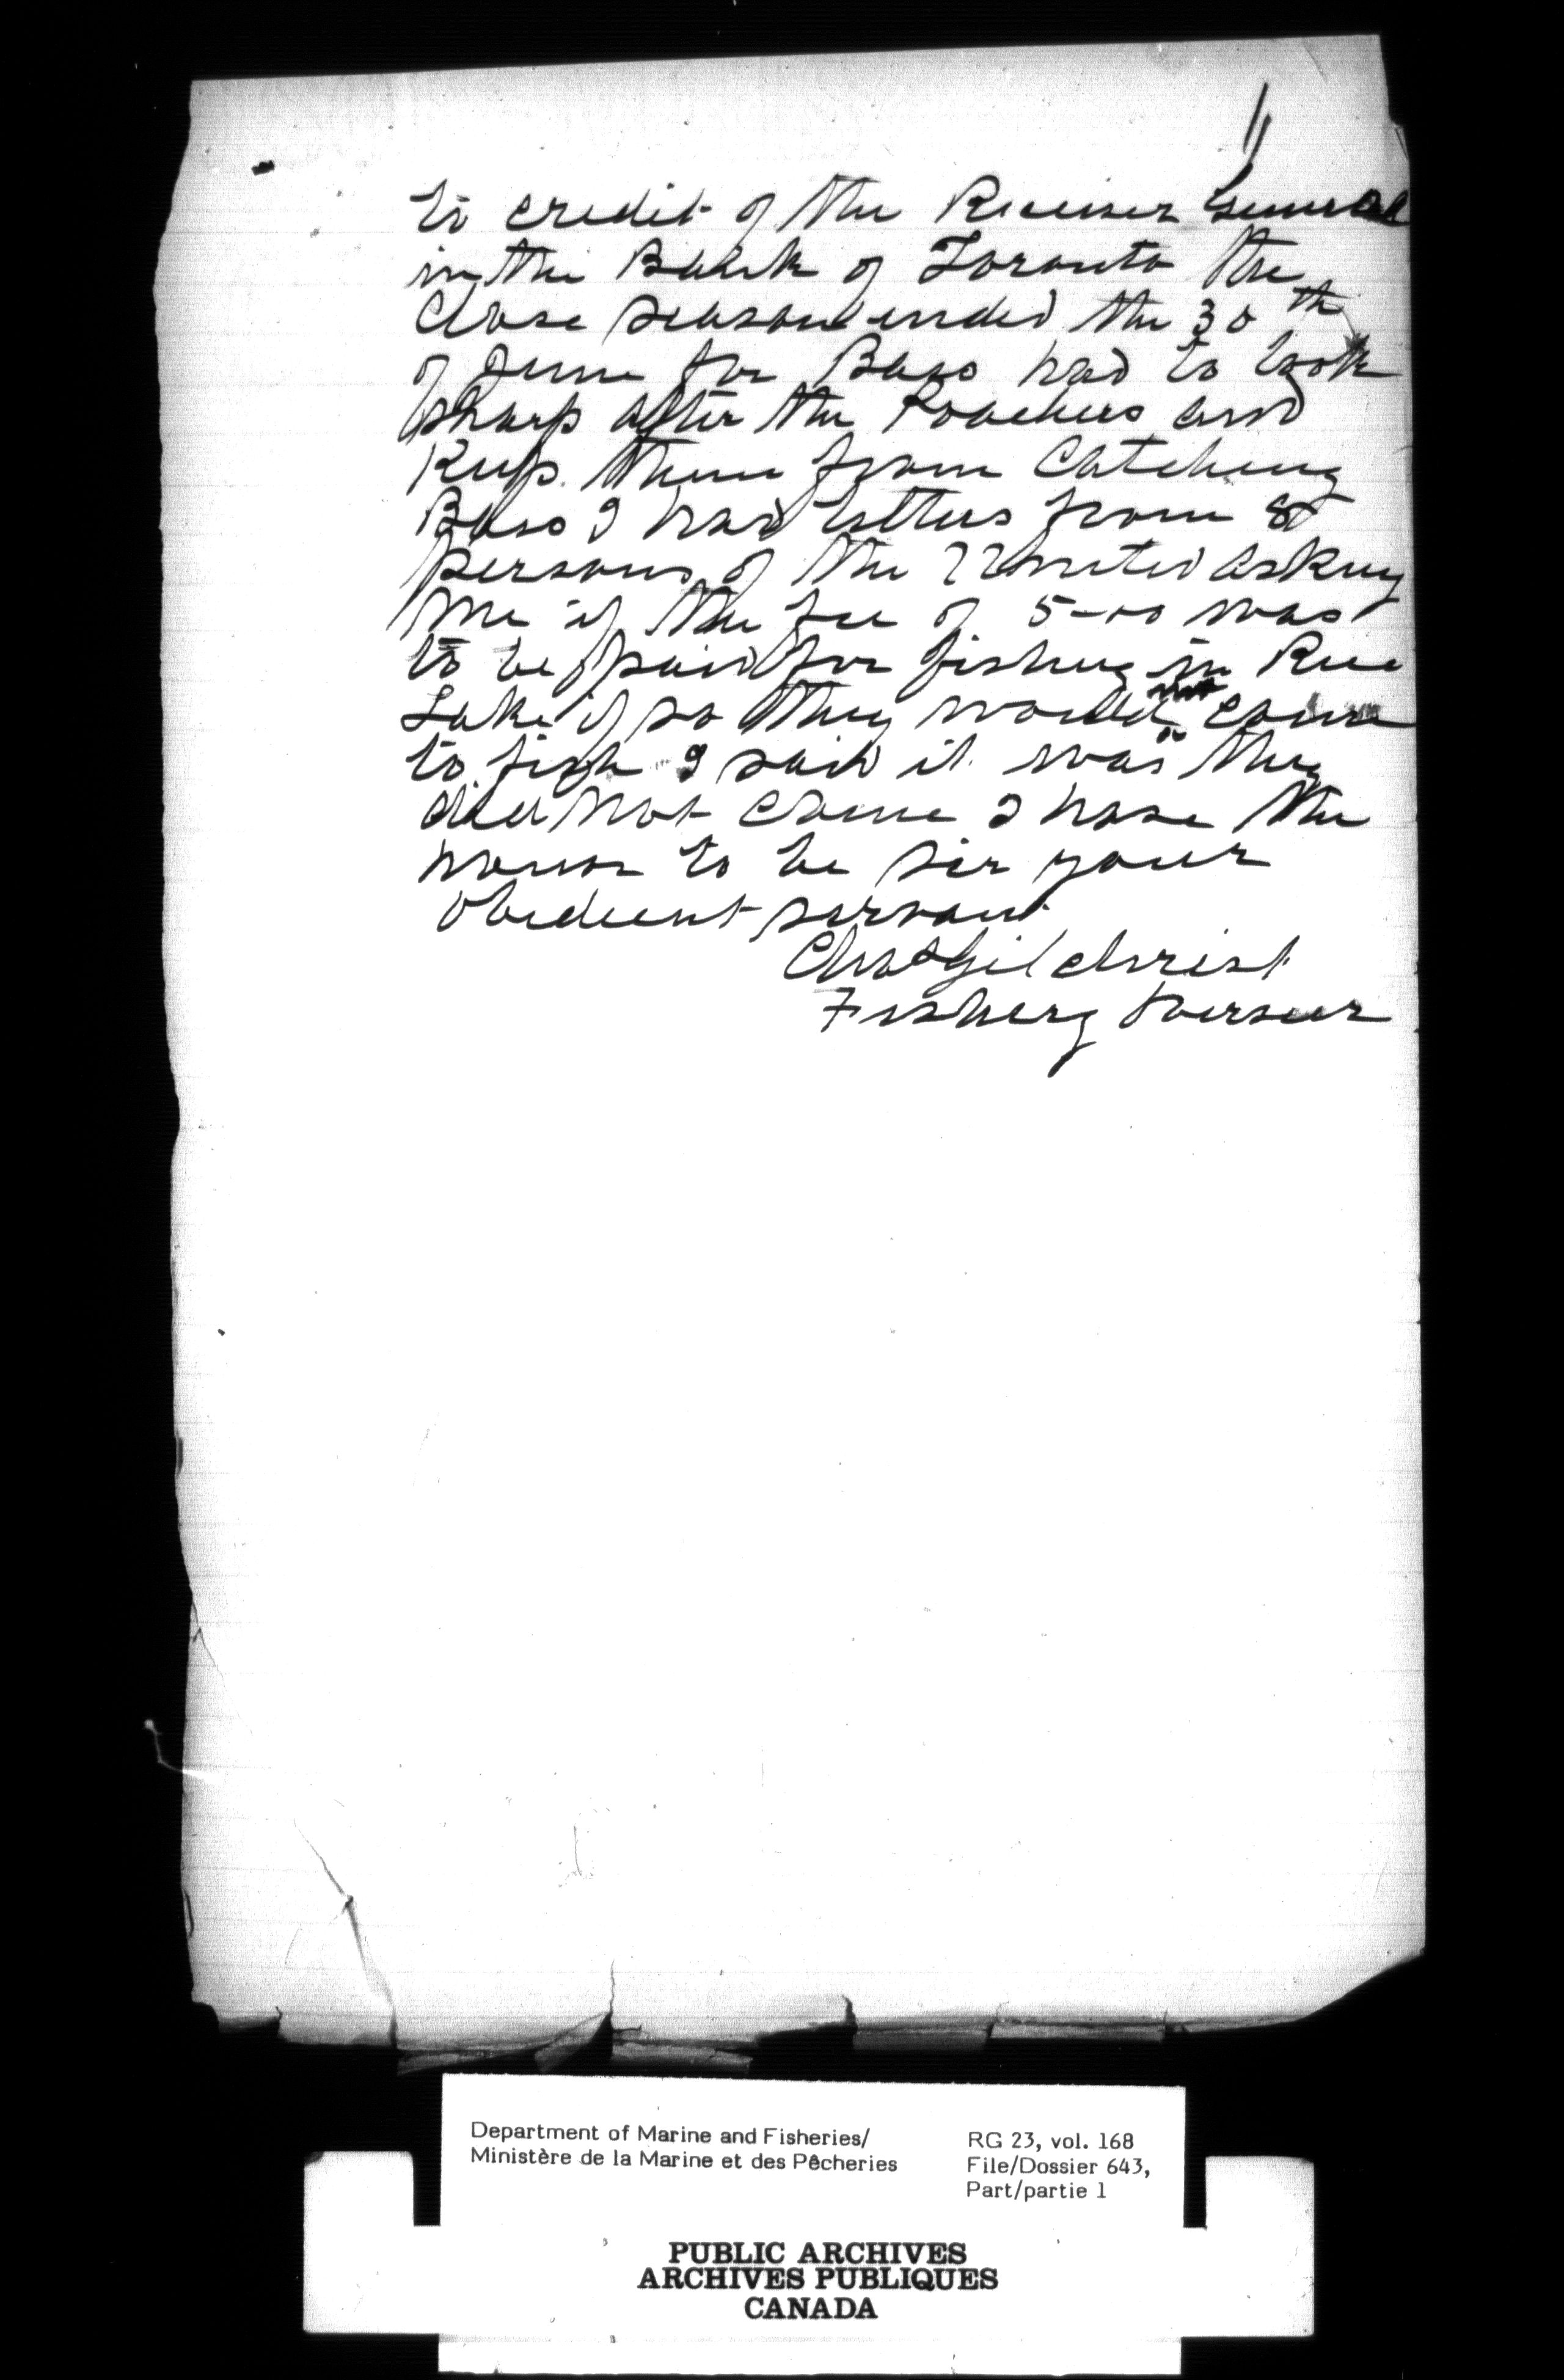 to credit of the Receiver General
in the Bank of Toronto the
Close season ended the 30th
of June for Bass had to look
sharp after the Poachers and
Keep them from Catching
Bass I had letters from 8
persons of the United asking
me if the fee of 5-00 was
to be paid for fishing in Rice
Lake if so they would not come
to fish I said it was they
did not Come I have the
honor to be sir your
obedient servant
Chas Gilchrist
Fishery Overseer
Department of Marine and Fisheries/
Ministère de la Marine et des Pêcheries
RG 23, vol. 168
File/Dossier 643,
Part/partie 1
PUBLIC ARCHIVES
ARCHIVES PUBLIQUES
CANADA